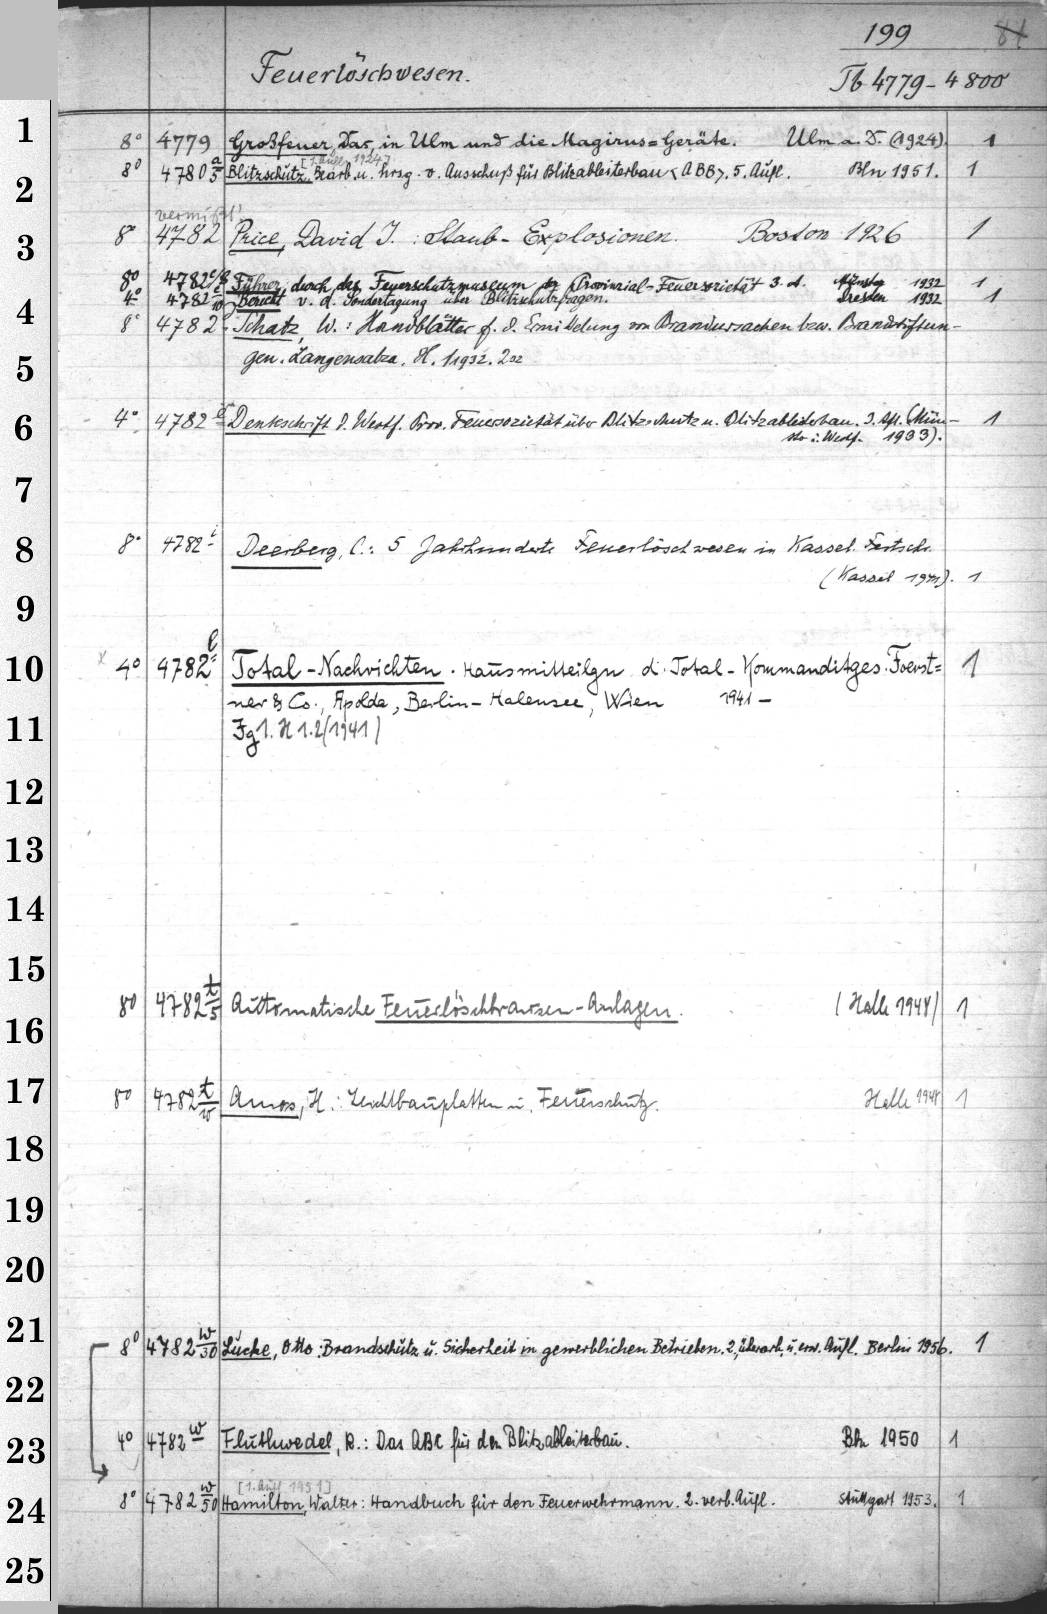 199 81
Feuerlöschwesen. Tb 4779-4800
1
8° 4779 Großfeuer, Das, in Ulm und die Magirus=Geräte. Ulm a. D. (1924). 1
[1. Aufl. 1924]
8° 4780 a/5 Blitzschutz. Bearb. u. hrsg. v. Ausschuß für Blitzableiterbau <ABB>. 5. Aufl. Bln 1951. 1
2
vermißt!
3
8° 4782 Price, David J. : Staub-Explosionen. Boston 1926 1
8° 4782 Führer durch das Feuerschutzmuseum der Provinzial-Feuersozietät 3. A. Münster 1932 1
4° 4782 Bericht v. d. Sondertagung über Blitzschutzfragen. Dresden 1932 1
4
8° 4782 Schatz, W. : Handblätter f. d. Ermittelung von Brandursachen bzw. Brandstiftun-
gen. Langensalza. H. 1 1932. 2
5
6
4° 4782 Denkschrift d. Westf. Prov. Feuersozietät über Blitzschutz u. Blitzableiterbau. 3. Afl. (Mün- 1
ster i. Westf. 1933).
7
8
8° 4782 i Deerberg, C.: 5 Jahrhunderte Feuerlöschwesen in Kassel. Festschr.
(Kassel ). 1
9
10
x 4° 4782 l Total-Nachrichten. Hausmitteilgn d. Total-Kommanditges. Foerst=
ner & Co., Apolda, Berlin-Halensee, Wien 1941 – 1
11
Jg 1. H 1.2 (1941)
12
13
14
15
8° 4782 t/5 Automatische Feuerlöschbrausen-Anlagen. (Halle 1948) 1
16
17
8° 4782 t/w Amos, H.: Leichtbauplatten u. Feuerschutz. Halle 1948 1
18
19
20
21
8° 4782 w/30 Lücke, Otto: Brandschutz u. Sicherheit in gewerblichen Betrieben. 2., überarb. u. erw. Aufl. Berlin 1956. 1
22
23
4° 4782 w Fluthwedel, R.: Das ABC für den Blitzableiterbau. Bln 1950 1
[1. Aufl 1951]
24
8° 4782 w/50 Hamilton, Walter: Handbuch für den Feuerwehrmann. 2. verb. Aufl. Stuttgart 1953. 1
25